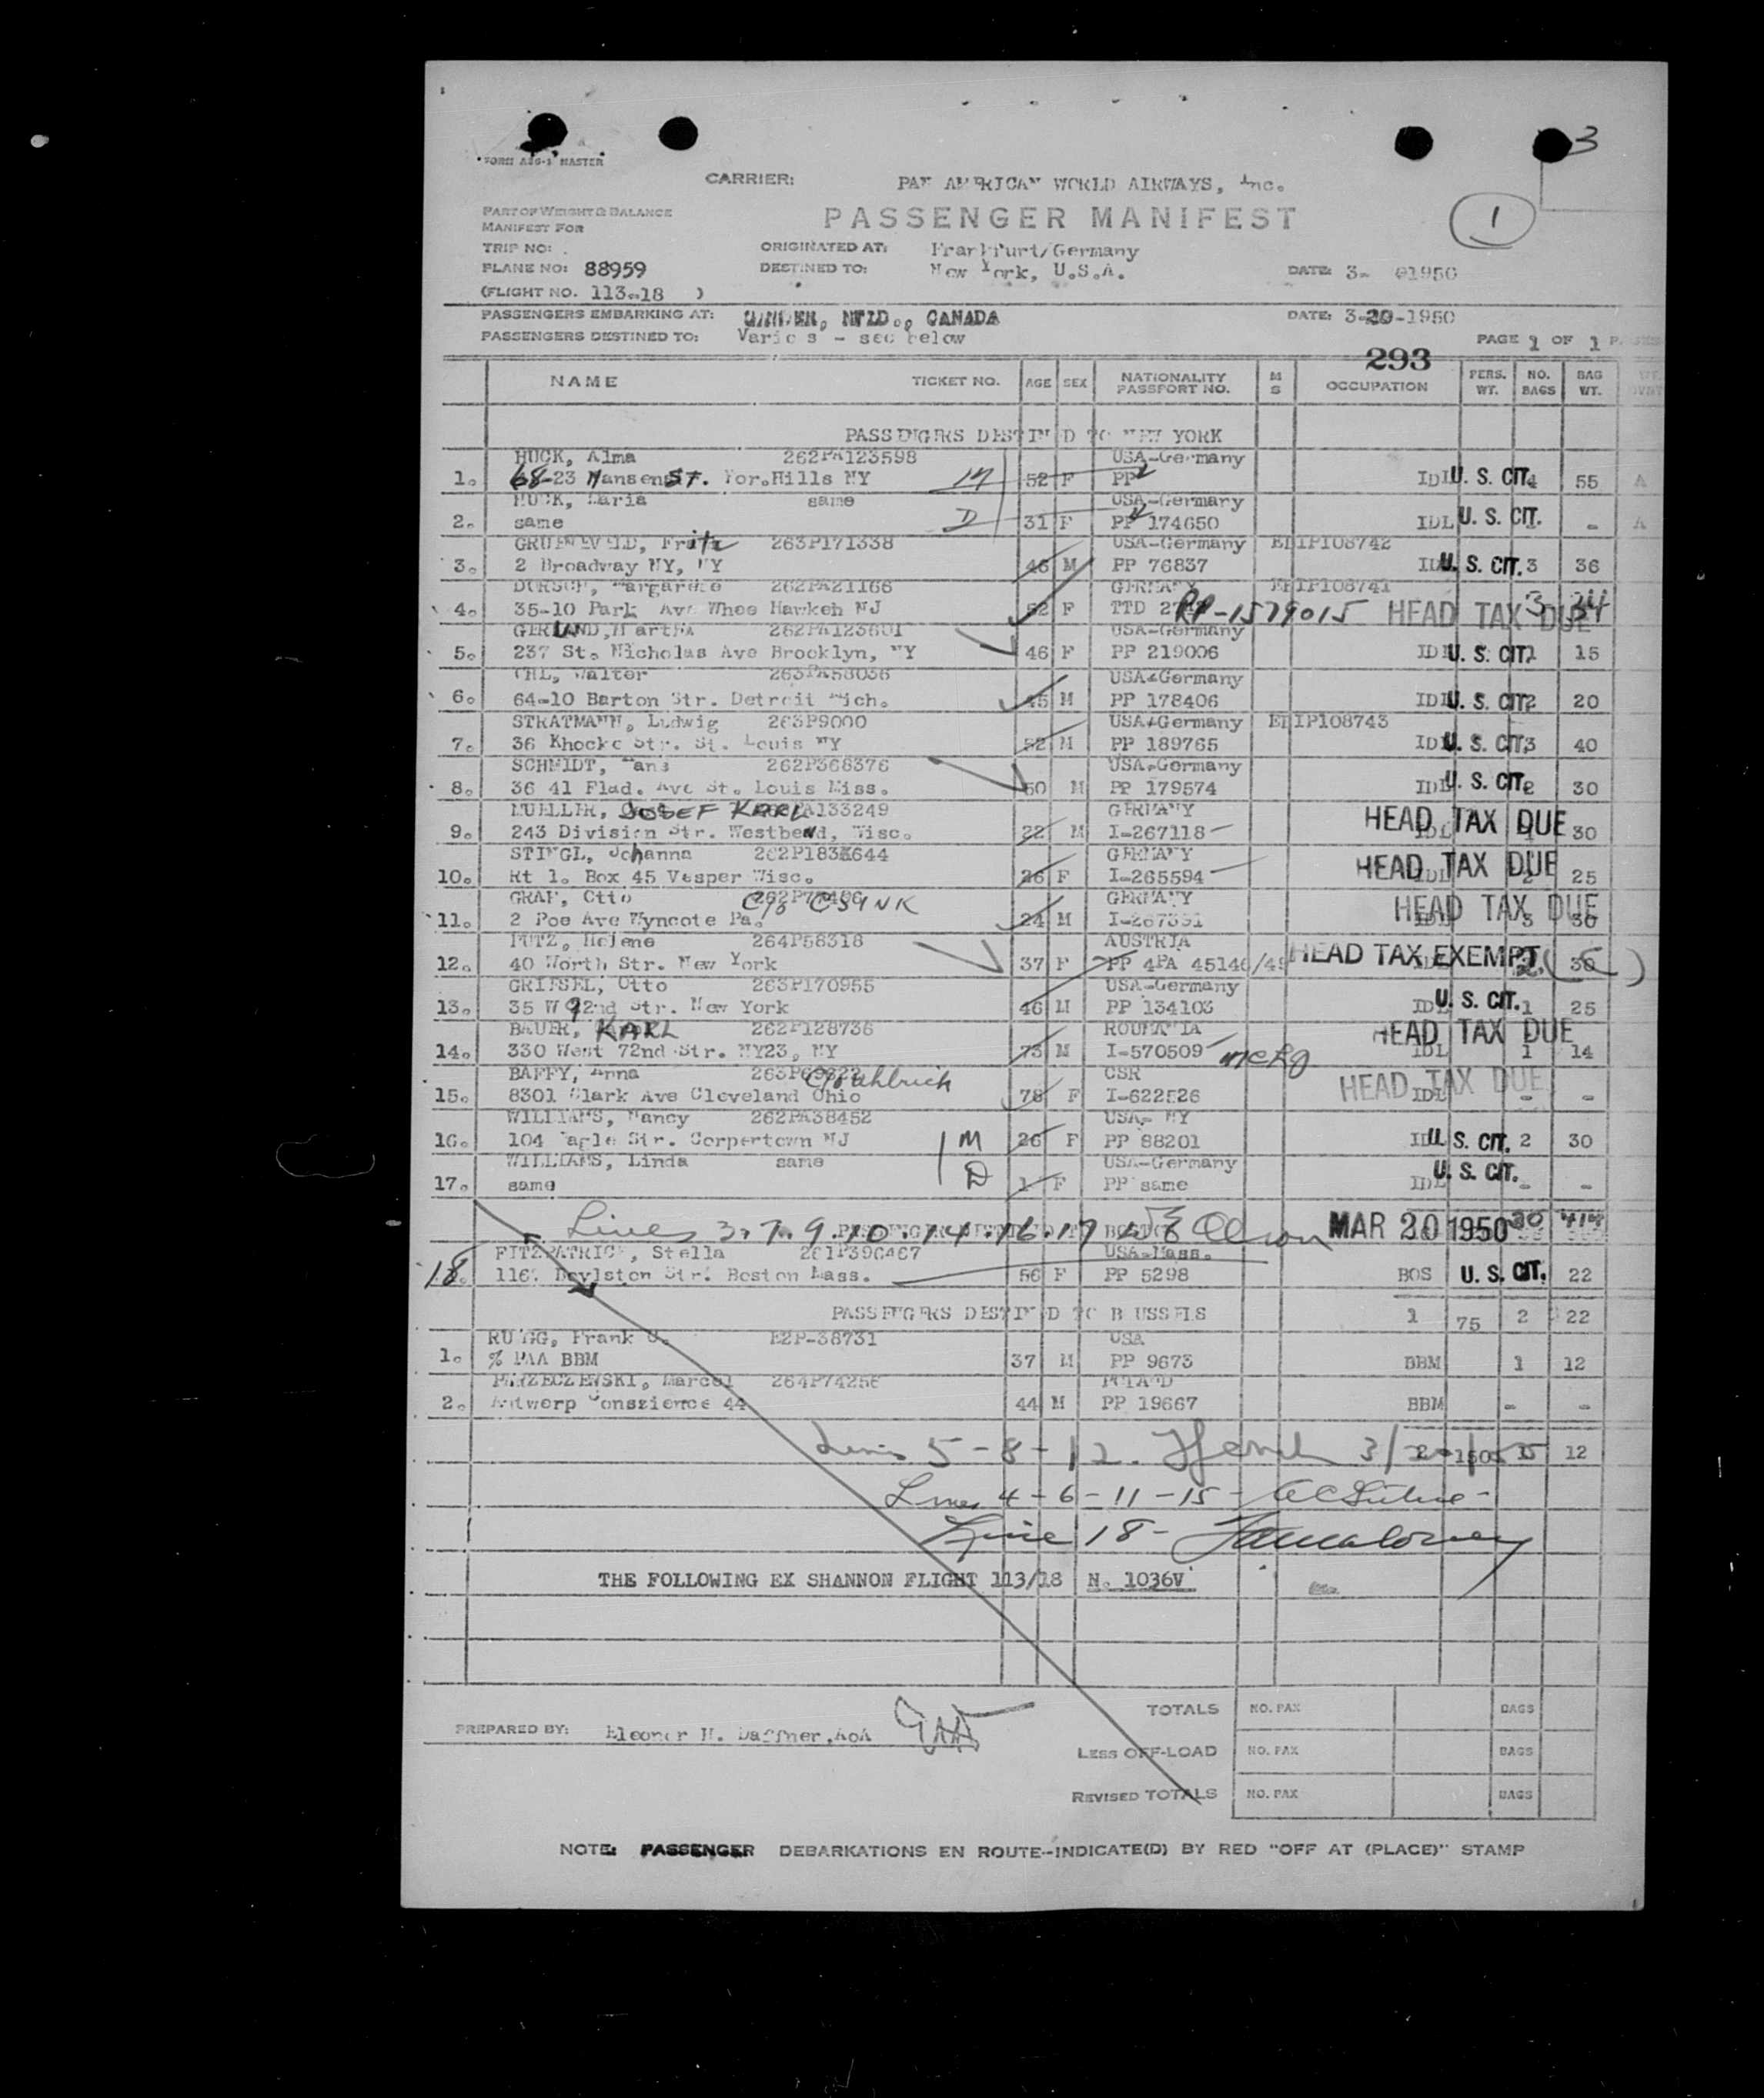 3
FORM ASG-1 MASTER
CARRIER: PAN AMERICAN WORLD AIRWAYS, Inc.
PART OF WEIGHT & BALANCE
MANIFEST FOR
PASSENGER MANIFEST
1
TRIP NO:
ORIGINATED AT: Frankfurt/Germany
PLANE NO: 88959
DESTINED TO: New York, U.S.A.
DATE: 3- 1950
(FLIGHT NO. 113-18 )
PASSENGERS EMBARKING AT: GANDER, NFLD., CANADA
DATE: 3-20-1950
PASSENGERS DESTINED TO: Various - see below
PAGE 1 OF 1
293
NAME TICKET NO. AGE SEX NATIONALITY PASSPORT NO. M S OCCUPATION PERS. WT. NO. BAGS BAG WT.
PASSENGERS DESTINED TO NEW YORK
HUCK, Alma 262PA123598 USA-Germany
1. 68-23 Mansen ST. For.Hills NY M 52 F PP IDL U. S. CIT. 4 55 A
HUCK, Maria same USA-Germany
2. same D 31 F PP 174650 IDL U. S. CIT. - A
GRUENEVELD, Fritz 263P171338 USA-Germany EDIP108742
3. 2 Broadway NY, NY 46 M PP 76837 IDL U. S. CIT. 3 36
DORSCH, Margarete 262PA21166 GERMANY EDIP108741
4. 35-10 Park Ave Whee Hawkeh NJ 52 F TTD RP-1579015 HEAD TAX DUE 3 34
GERLAND, Martha 262PA123601 USA-Germany
5. 237 St. Nicholas Ave Brooklyn, NY 46 F PP 219006 IDL U. S. CIT. 1 15
UHL, Walter 263PA58036 USA-Germany
6. 64-10 Barton Str. Detroit Mich. 45 M PP 178406 IDL U. S. CIT. 2 20
STRATMANN, Ludwig 263P9000 USA-Germany EDIP108743
7. 36 Khocke Str. St. Louis NY 52 M PP 189765 IDL U. S. CIT. 3 40
SCHMIDT, Hans 262P368376 USA-Germany
8. 36 41 Flad. Ave St. Louis Miss. 50 M PP 179574 IDL U. S. CIT. 2 30
MUELLER, JOSEF KARL A133249 GERMANY
9. 243 Division Str. Westbend, Wisc. 22 M I-267118 HEAD TAX DUE 30
STINGL, Johanna 262P183644 GERMANY
10. Rt 1. Box 45 Vesper Wisc. 26 F I-265594 HEAD TAX DUE 2 25
GRAF, Otto C/o CSINK GERMANY
11. 2 Poe Ave Wyncote Pa. 24 M I-267351 HEAD TAX DUE 3 30
PUTZ, Helene 264P58318 AUSTRIA
12. 40 Worth Str. New York 37 F PP 4FA 45146/49 HEAD TAX EXEMPT 2 30
GRIESEL, Otto 263P170955 USA-Germany
13. 35 W 92nd Str. New York 46 M PP 134103 IDL U. S. CIT. 1 25
BAUER, KARL 262P128736 ROUMANIA
14. 330 West 72nd Str. NY23, NY 73 M I-570509 IDL HEAD TAX DUE 1 14
BAFFY, Anna C/o Uhlrich CSR
15. 8301 Clark Ave Cleveland Ohio 78 F I-622526 IDL HEAD TAX DUE - -
WILLIAMS, Nancy 262PA38452 USA- NY
16. 104 Eagle Str. Corpertown NJ M 26 F PP 88201 IDL U. S. CIT. 2 30
WILLIAMS, Linda same USA-Germany
17. same D 1 F PP same IDL U. S. CIT. - -
Lines 3.7.9.10.14.16.17 Olson MAR 20 1950 30 414
PASSENGERS DESTINED TO BOSTON
FITZPATRICK, Stella 261P396467 USA-Mass.
18. 116 Boylston Str. Boston Mass. 56 F PP 5298 BOS U. S. CIT. 22
PASSENGERS DESTINED TO BRUSSELS 1 75 2 22
RUGG, Frank J. EZP-38731 USA
1. % PAA BBM 37 M PP 9673 BBM 1 12
PERZECZEWSKI, Marcel 264P74256 POLAND
2. Antwerp Conszience 44 44 M PP 19667 BBM - -
Lines 5-8-12. 3/20/50 12
Lines 4-6-11-15-
Line 18-
THE FOLLOWING EX SHANNON FLIGHT 113/18 N. 1036V
TOTALS NO. PAX BAGS
PREPARED BY: Eleonor H. Daffner, AOA
LESS OFF-LOAD NO. PAX BAGS
REVISED TOTALS NO. PAX BAGS
NOTE: PASSENGER DEBARKATIONS EN ROUTE--INDICATE(D) BY RED "OFF AT (PLACE)" STAMP